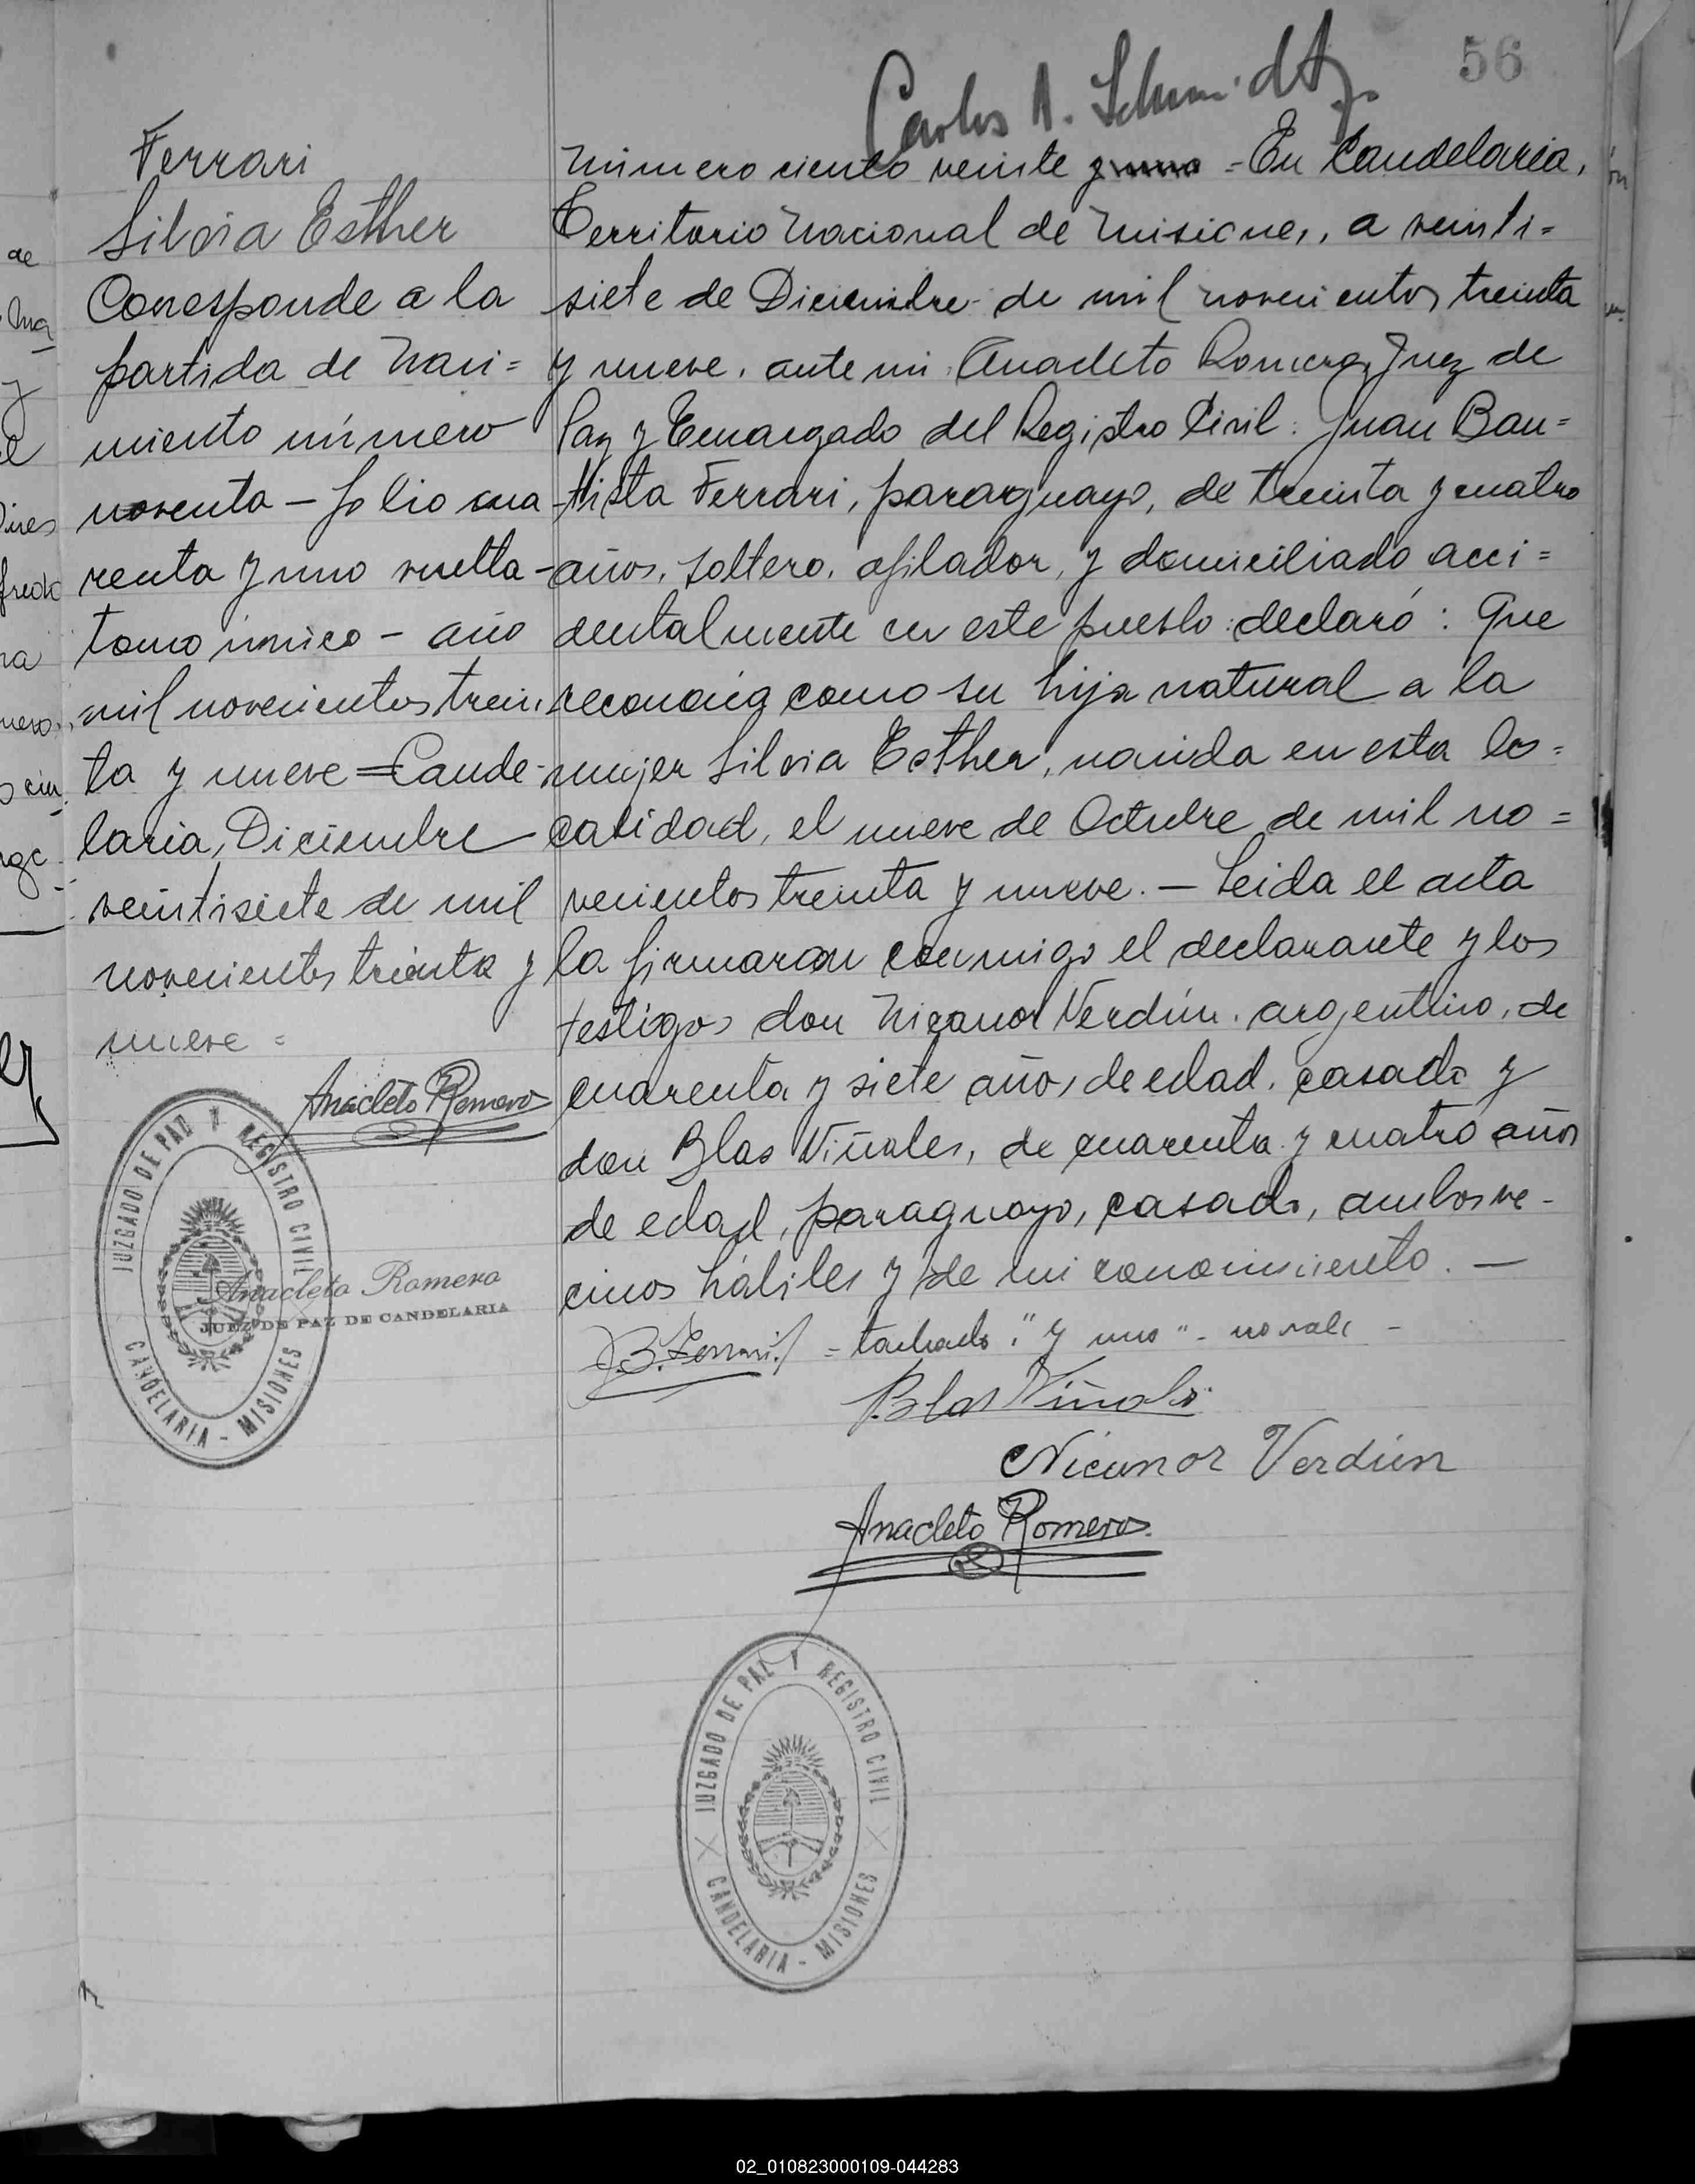 56
Carlos A. Schmidt
Ferrari
Silvia Esther
Corresponde a la
partida de Naci=
miento número
noventa - folio cua
renta y uno vuelta -
tomo único - año
mil novecientos trein-
ta y nueve = Cande-
laria, Diciembre
veintisiete de mil
novecientos treinta y
nueve =
Anacleto Romero
JUZGADO DE PAZ Y REGISTRO CIVIL
CANDELARIA - MISIONES
Anacleto Romero
JUEZ DE PAZ DE CANDELARIA
Número ciento veinte y uno = En Candelaria,
Territorio Nacional de Misiones, a veinti=
siete de Diciembre de mil novecientos treinta
y nueve, ante mi Anacleto Romero, Juez de
Paz y Encargado del Registro Civil: Juan Bau=
tista Ferrari, paraguayo, de treinta y cuatro
años, soltero, afilador, y domiciliado acci=
dentalmente en este pueblo declaró: Que
reconocía como su hija natural a la
mujer Silvia Esther, nacida en esta lo=
calidad, el nueve de Octubre de mil no=
vecientos treinta y nueve. - Leida el acta
la firmaron conmigo el declarante y los
testigos don Nicanor Verdún, argentino, de
cuarenta y siete años de edad, casado y
don Blas Viñales, de cuarenta y cuatro años
de edad, paraguayo, casado, ambos ve-
cinos hábiles y de mi conocimiento. -
J.B. Ferrari = tachado: "y uno" - no vale -
Blas Viñales
Nicanor Verdún
Anacleto Romero
JUZGADO DE PAZ Y REGISTRO CIVIL
CANDELARIA - MISIONES
02_010823000109-044283